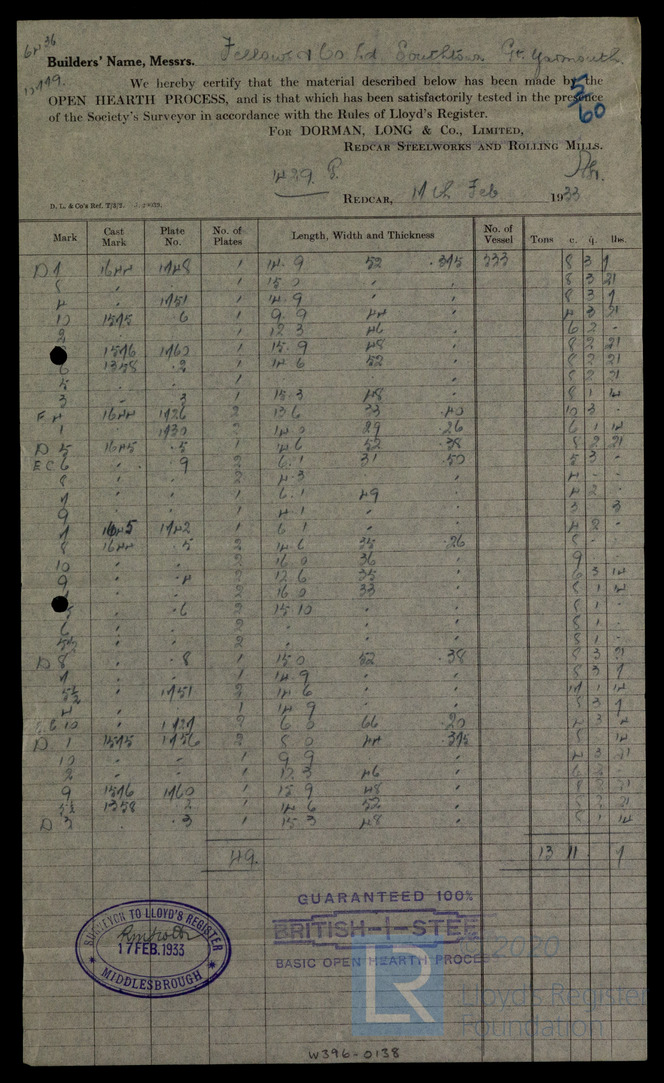 Builders' Name, Messrs. Fellows & Co Ld Southtown Gt. Yarmouth.
We hereby certify that the material described below has been made by the
OPEN HEARTH PROCESS, and is that which has been satisfactorily tested in the presence
of the Society's Surveyor in accordance with the Rules of Lloyd's Register.
5/60
FOR DORMAN, LONG & Co., LIMITED,
REDCAR STEELWORKS AND ROLLING MILLS.
REDCAR, 17th Feb 1933
D. L. & Co's Ref. T/3/7.
Mark Cast Mark Plate No. No. of Plates Length, Width and Thickness No. of Vessel Tons c. q. lbs.
D 7 1644 1748 1 14.9 52 .375 333 8 3 7
8 1 15 0 8 3 21
4 1751 1 14 9 8 3 7
10 1575 6 1 9.9 44 4 3 21
2 1 12 3 46 6 2
1576 1760 1 15.9 48 8 2 21
6 1358 2 1 14 6 52 8 2 21
5 1 8 2 21
3 3 1 15.3 48 8 1 14
F 4 1644 1726 2 13 6 33 .40 10 3
1 1730 2 14.0 29 .26 6 1 14
D 5 1645 5 1 14 6 52 .38 8 2 21
E C 6 9 2 6.1 31 .50 5 3
8 2 4.3 4
7 1 6.1 49 4 2
9 1 4.1 3 3
7 1645 1742 1 6 1 4 2
8 1644 5 2 14 6 35 .26 8
10 2 16 0 36 9
9 4 2 12 6 35 6 3 14
2 16 0 33 8 1 14
6 2 15 10 8 1
6 2 8 1
5½ 2 8 1
D 8 8 1 15 0 52 .38 8 3 21
7 1 14.9 8 3 7
5½ 1751 2 14 6 17 1 14
4 1 14 9 8 3 7
10 1727 2 6 0 66 .20 4 3 4
D 1 1575 1756 2 8 0 44 .375 8 14
10 1 9 9 4 3 21
2 1 12.3 46 6 2
9 1576 1760 1 15 9 48 8 2 21
5½ 1358 2 1 14 6 52 8 2 21
D 3 3 1 15 3 48 8 1 14
49. 13 11 7
GUARANTEED 100%
BRITISH-I-STEE
BASIC OPEN HEARTH PROCES
SURVEYOR TO LLOYD'S REGISTER
17 FEB. 1933
MIDDLESBROUGH
LR
2020
Lloyd's Register
Foundation
W396-0138